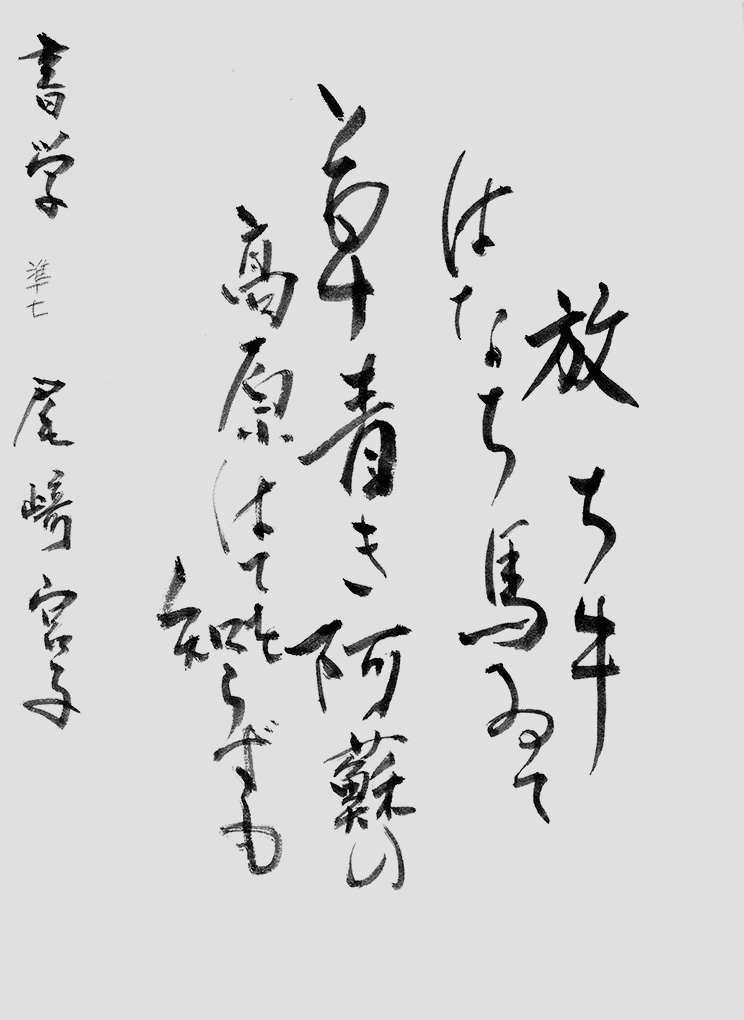 放ち牛
はなち馬ゐて
草青き阿蘇の
高原はても
知らずも
書学 準七 尾崎宮子